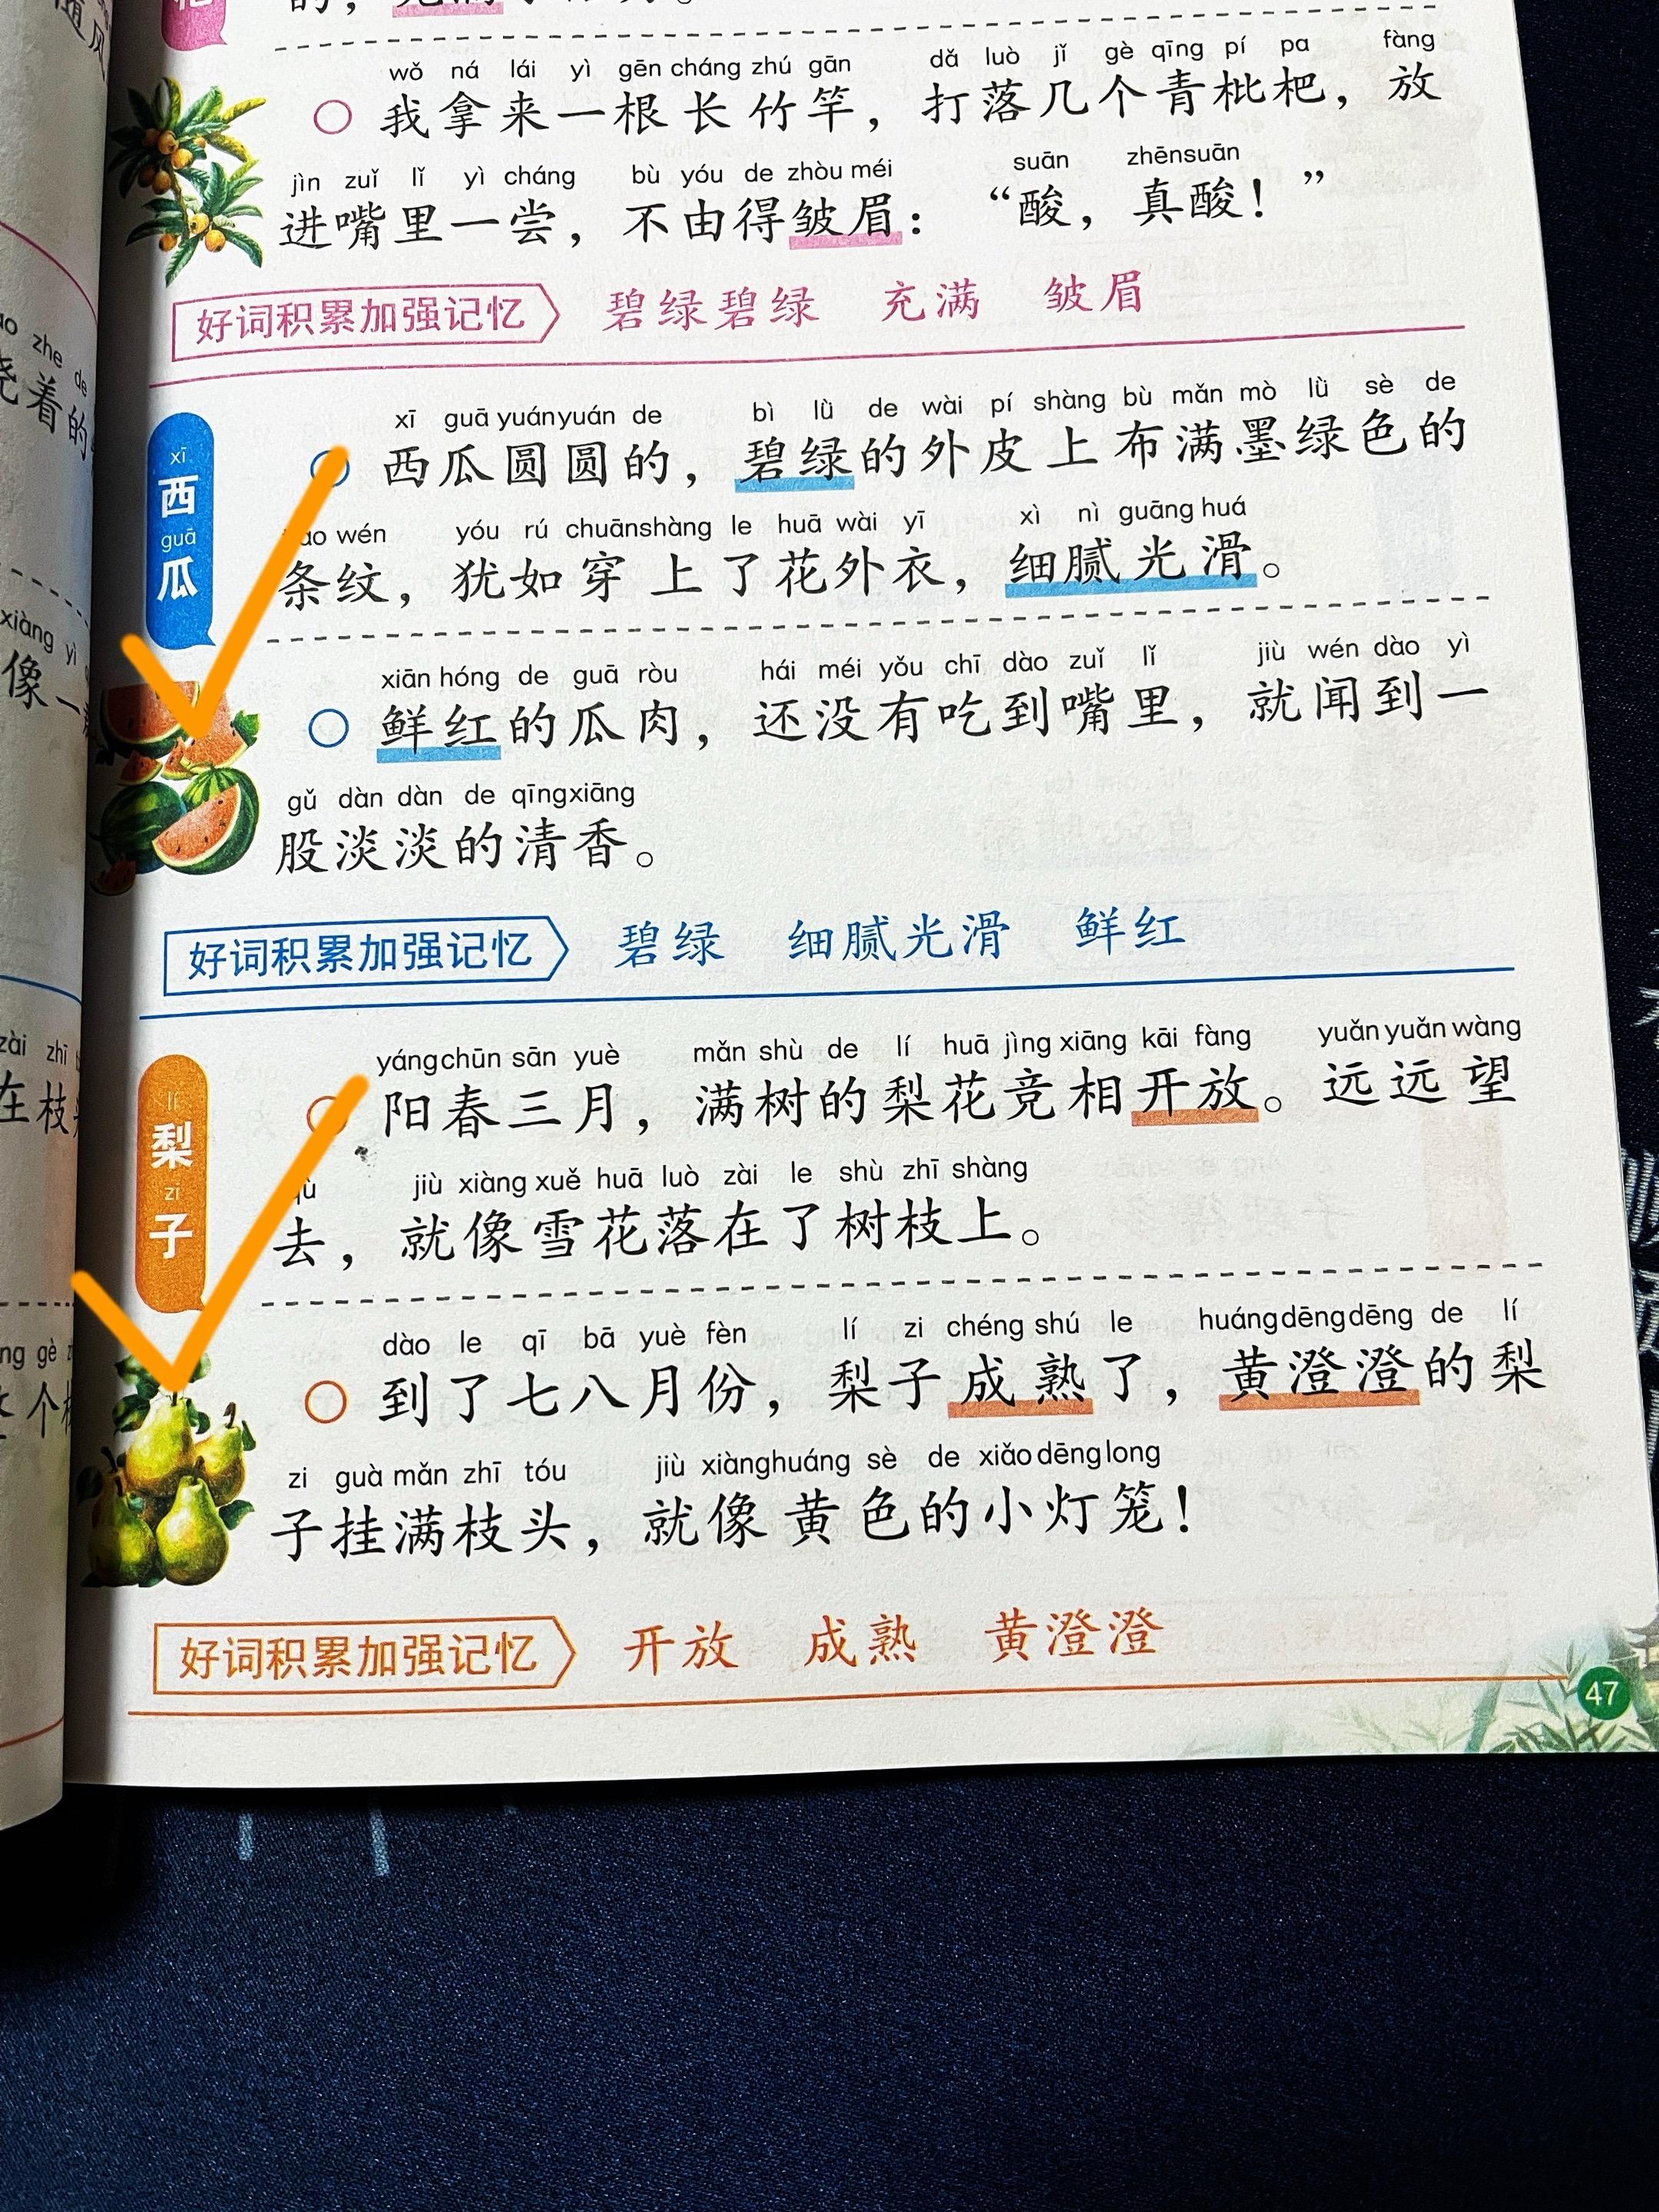 wǒ ná lái yì gēn cháng zhú gān dǎ luò jǐ gè qīng pí pa fàng
我拿来一根长竹竿，打落几个青枇杷，放
jìn zuǐ lǐ yì cháng bù yóu de zhòu méi suān zhēn suān
进嘴里一尝，不由得皱眉：“酸，真酸！”
好词积累加强记忆 碧绿碧绿 充满 皱眉
xī
西
guā
瓜
xī guā yuán yuán de bì lǜ de wài pí shàng bù mǎn mò lǜ sè de
西瓜圆圆的，碧绿的外皮上布满墨绿色的
wén yóu rú chuān shàng le huā wài yī xì nì guāng huá
条纹，犹如穿上了花外衣，细腻光滑。
xiān hóng de guā ròu hái méi yǒu chī dào zuǐ lǐ jiù wén dào yì
鲜红的瓜肉，还没有吃到嘴里，就闻到一
gǔ dàn dàn de qīng xiāng
股淡淡的清香。
好词积累加强记忆 碧绿 细腻光滑 鲜红
lí
梨
zi
子
yáng chūn sān yuè mǎn shù de lí huā jìng xiāng kāi fàng yuǎn yuǎn wàng
阳春三月，满树的梨花竞相开放。远远望
jiù xiàng xuě huā luò zài le shù zhī shàng
去，就像雪花落在了树枝上。
dào le qī bā yuè fèn lí zi chéng shú le huáng dēng dēng de lí
到了七八月份，梨子成熟了，黄澄澄的梨
zi guà mǎn zhī tóu jiù xiàng huáng sè de xiǎo dēng long
子挂满枝头，就像黄色的小灯笼！
好词积累加强记忆 开放 成熟 黄澄澄
47